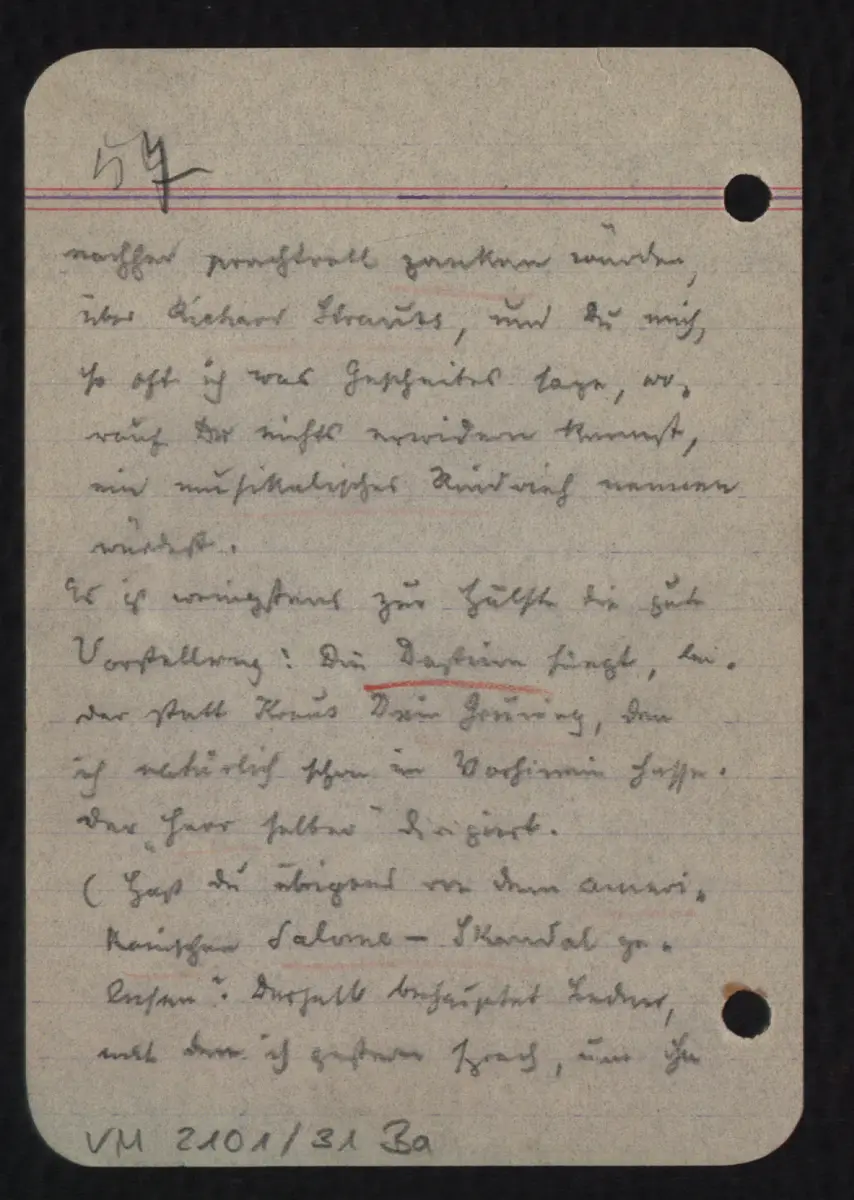 57
nachher prachtvoll zanken würden,
über Richard Strauss, und Du mich,
so oft ich was Gescheites sage, wo-
rauf Du nichts erwidern kannst,
ein musikalisches Rindvieh nennen
würdest.
Es ist wenigstens zur Hälfte die gute
Vorstellung: Die Destinn singt, lei-
der statt Kraus Dein Grüning, den
ich natürlich schon im Vorhinein hasse.
Der „Herr selber" dirigiert.
(Hast du übrigens von dem ameri-
kanischen Salome - Skandal ge-
lesen? Deshalb behauptet
mit dem ich gestern sprach, um ihn
VM 2101/31 Ba